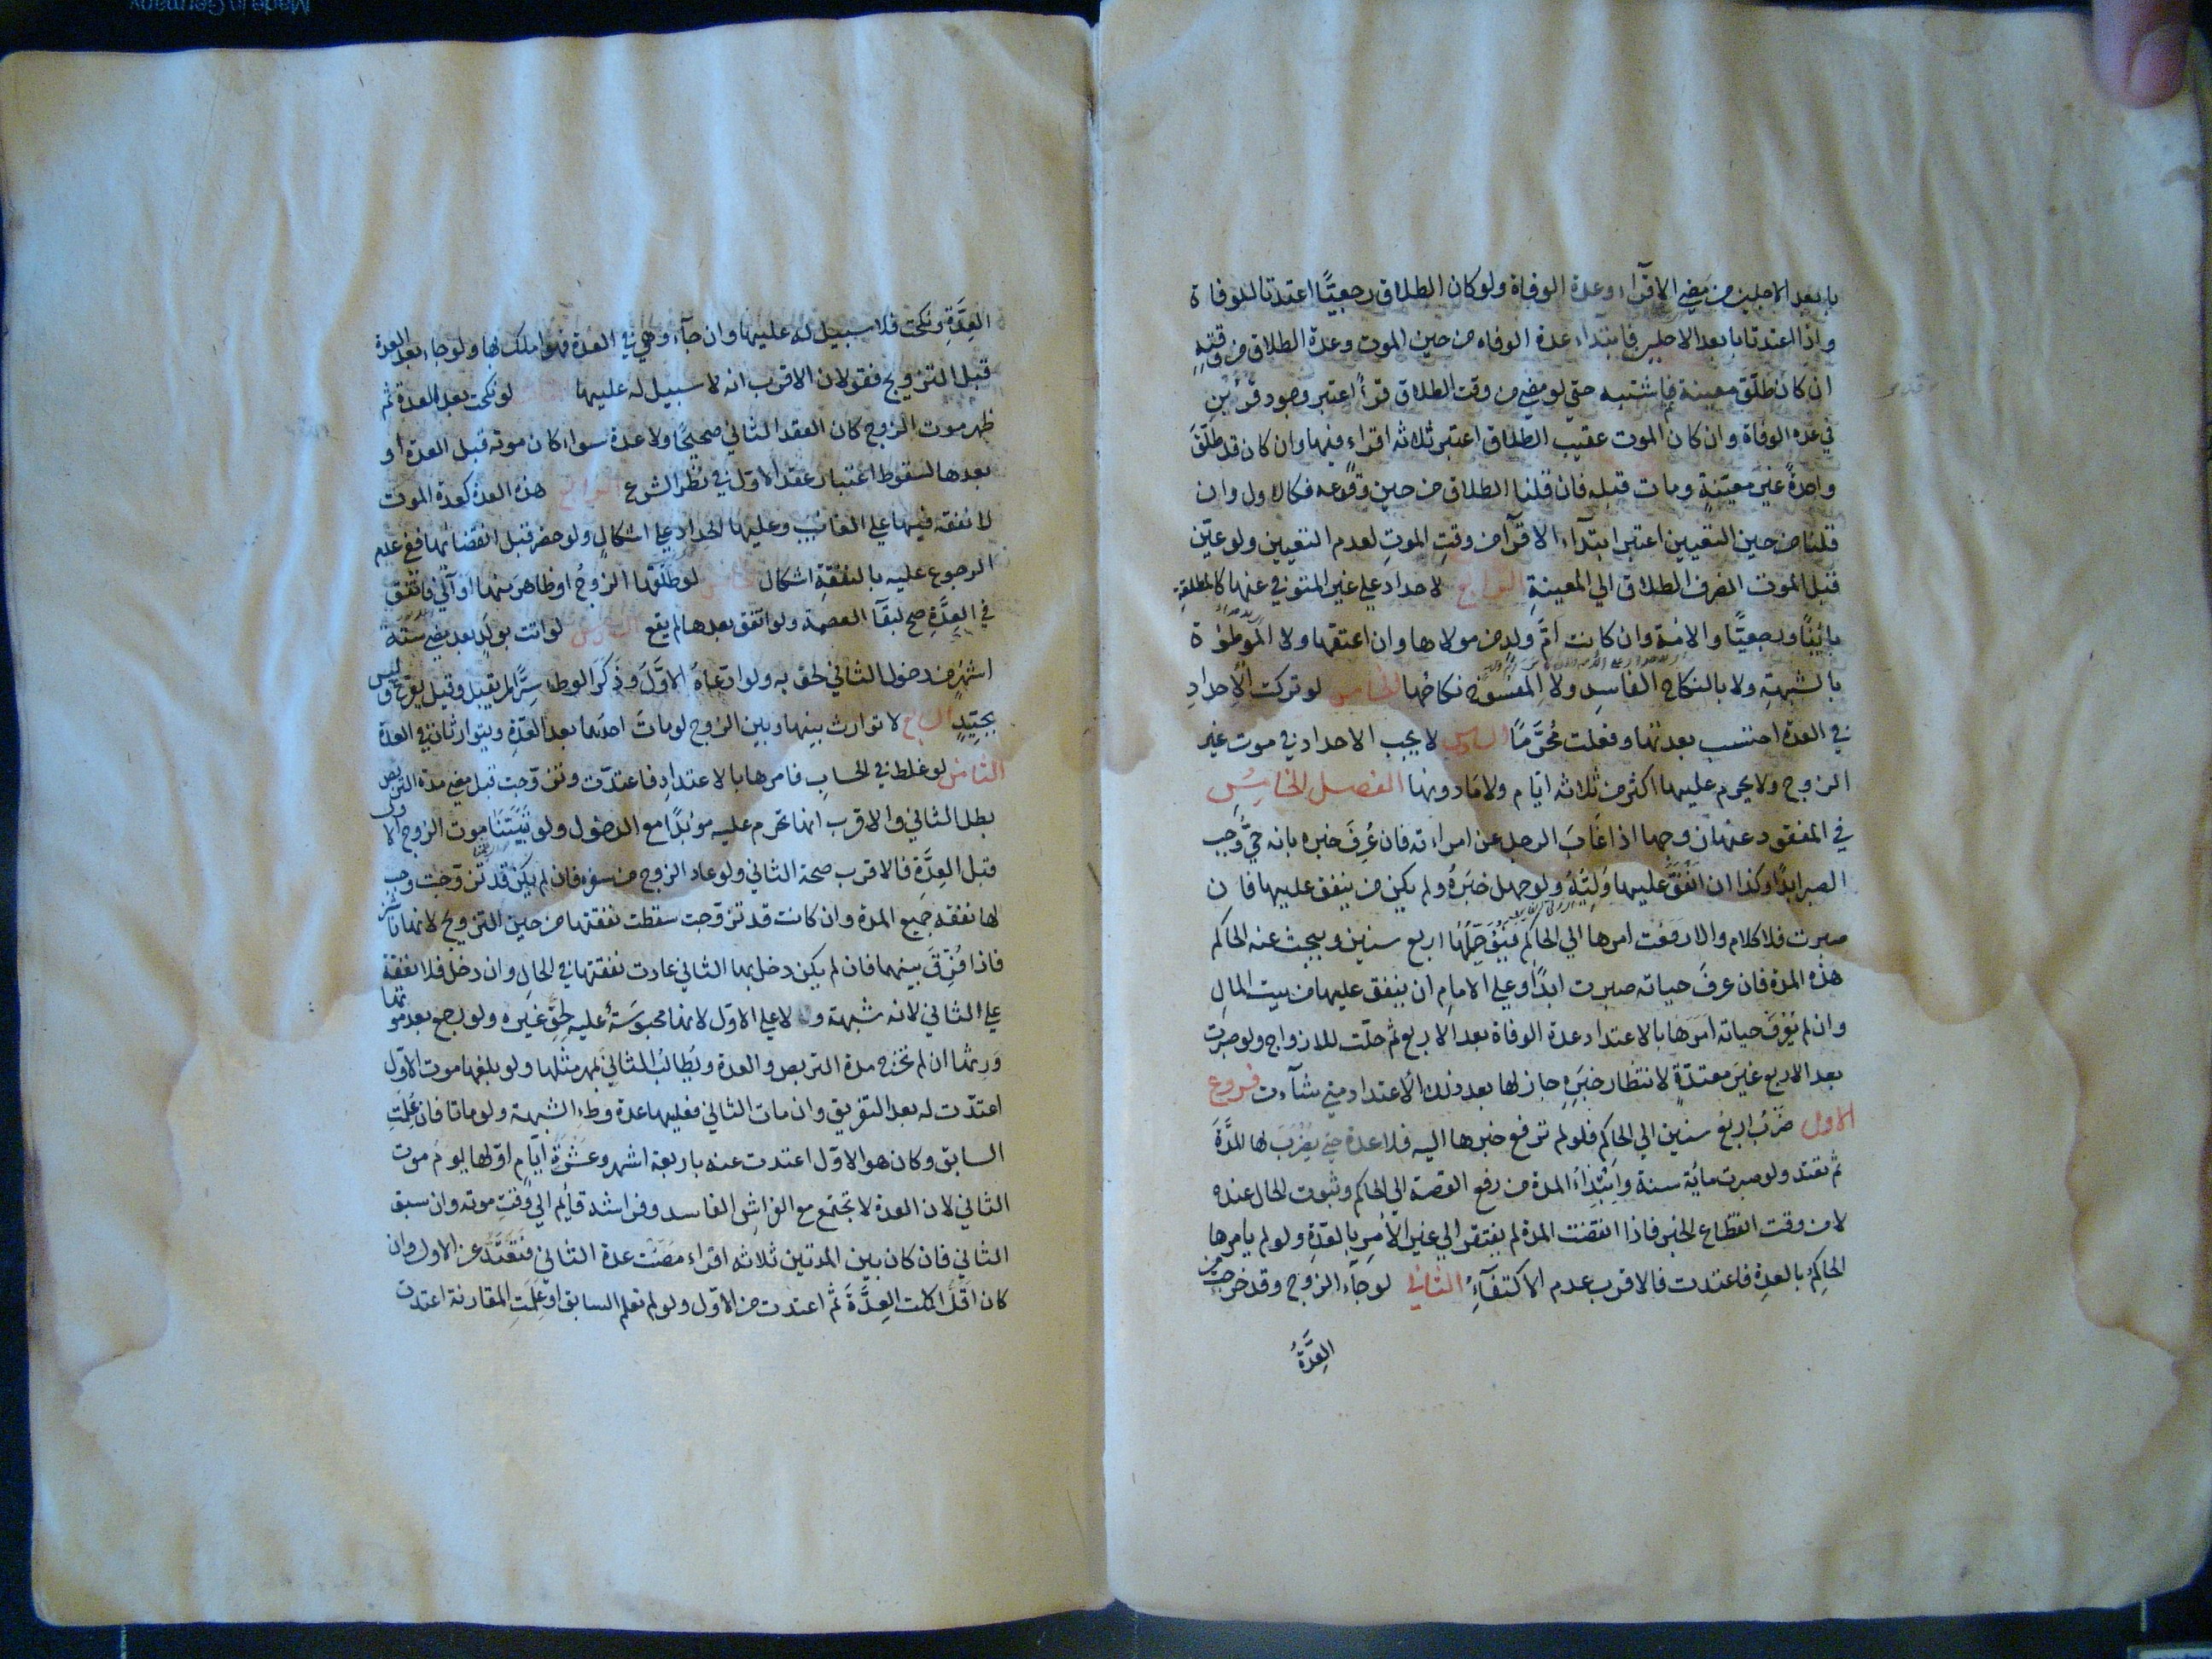 بابعد الاجلين من مضي الاقرآء وعدة الوفاة ولو كان الطلاق رجعيًّا اعتدتا للوفاة
واذا اعتدتا بابعد الاجلين فابتداء عدة الوفاه من حين الموت وعدة الطلاق من وقته
ان كان طلّق معينة ثم اشتبه حتى لو مضى من وقت الطلاق قرءٌ اعتبر وجود قرئين
في عدة الوفاة وان كان الموت عقيب الطلاق اعتبر ثلاثه اقراء فيها وان كان قد طلّقَ
واحدةً غيرَ معيّنةٍ ومات قبله فان قلنا الطلاق من حين وقوعه فكالاول وان
قلنا من حين التعيين اعتبر ابتدآء الاقرآ من وقتِ الموتِ لعدم التعيين ولو عيّن
قبل الموت انصرف الطلاق الي المعينةِ الرابع لا حداد علي غير المتوفي عنها كالمطلقةِ
بائِنًا ورجعيًّا والامَة وان كانت امَّ ولدٍ من مولاها وان اعتقها ولا الموطوءة
بالشبهةِ ولا بالنكاح الفاسِدِ ولا المفسوخ نكاحُها الخامس لو تركت الاِحدادِ
في العدّة احتسب بعدتها وفعلت مُحَرَّمًا السادس لا يجب الاحداد في موت غير
الزوج ولا يحرم عليها اكثر من ثلاثه ايّام ولا مَا دونها الفصل الخامِسُ
في المفقود عنها زوجها اذا غَابَ الرجل عن امراءته فان عُرِفَ خبره بانه حيٌّ وَجَب
الصبر ابدًا وكذا ان انفَقَ عليها وَليُّهُ ولو جهل خبَرهُ ولم يكن من ينفق عليها فان
صبرت فلا كلام والا رفعَت امرها الي الحاكم فيؤجّلُها اربع سنين ويبحث عنه الحاكم
هذه المدة فان عرفَ حياته صبرت ابدًا وعلى الامامِ ان ينفق عليها من بيت المالِ
وان لم يُعْرفْ حياته امَرهَا بالاعتداد عدة الوفاة بعد الاربع ثم حلّت للازواج ولو صبرت
بعد الاربع غيرَ معتدّةٍ لانتظار خبَرِهِ جاز لها بعد ذلك الاعتداد متى شآءت فروع
الاول ضَرْبُ اربع سنين الي الحاكم فلو لم ترفع خبرها اليه فلا عدة حتى يضْرِبَ لها المدَّةَ
ثم تعتد ولو صبرت مائة سنة وابْتِدَاءُ المدة من رفع القصة الي الحاكم وثبوت الحال عنده
لا من وقت انقطاع الخبر فاذا انقضت المدة لم يفتقر الي غير الأمرِ بالعدّةِ ولو لم يامرها
الحاكِمُ بالعدةِ فاعتدت فالاقرب عدم الاكتفآءِ الثاني لو جآء الزوج وقد خرجت من
العِدَّةُ
العِدَّةِ ونكحت فلا سبيل له عليها وان جآء وهي في العدّة فهوا ملك بها ولو جاء بعد العدة
قبل التزويج فقولان الاقرب انه لا سبيل له عليها لو نكحت بعد العدة ثم
ظهر موت الزوج كان العقد الثاني صحيحًا ولا عدة سواء كان موته قبل العدة او
بعدها لسقوط اعتبار عقد الاوّل في نظر الشرع الرابع هذه العدة كعدة الموت
لا نفقة فيها على الغائب وعليها الحداد على اشكال ولو حضر قبل انقضائها ففي عدم
الرجوع عليه بالنفقةِ اشكال الخامس لو طلّقها الزوجُ او ظاهر منها او آلى فاتفق
في العِدَّةِ صح لبقآء العصمة ولو اتفق بعدها لم يقع السادس لو اتت بولدٍ بعد مضي ستة
اشهرٍ من دخول الثاني لحق به ولو ادّعَاهُ الاوَّلُ وذَكَرَ الوطء سِرًّا لم يقبل وقيل يقرع وليس
بجيّدٍ السابع لا توارث بينها وبين الزوج لو ماتَ احدهما بعد العدّةِ ويتوارثان في العدّة
الثامن لو غلط في الحساب فامرها بالاعتداد فاعتدّت وتزوّجت قبل مضي مدة التربص
بطل الثاني والاقرب انها تحرم عليه مؤبّدًا مع الدخول ولو تبيّنَا موت الزوج الاول
قبل العِدَّة فالاقرب صحة الثاني ولو عاد الزوج من سفره فان لم يكن قد تزوّجت وجب
لها نفقه جَميع المدة وان كانت قد تزوّجت سقطت نفقتها من حين التزويج لانها ناشز
فاذا فُرِّقَ بينهما فان لم يكن دخل بها الثاني عادت نفقتها في الحال وان دخل فلا نفقة
على الثاني لانه شبهة ولا على الاوّل لانها محبوسَة عليه لحِقّ غيره ولو رجع بعد موتها
وَرِثها ان لم تخرج مدة التربص والعدة ويُطالب الثاني بمهر مثلها ولو بلغها موت الاوّل
اعتدّت له بعد التفريق وان مات الثاني فعليها عدة وطء الشبهة ولو ماتا فان عُلِمَت
السابق وكان هو الاوّل اعتدت عنه باربعة اشهر وعَشَرة ايّام اوّلها يوم موت
الثاني لان العدة لا تجتمع مع الفراشِ الفاسد وفراشه قايم الي وقت موته وان سبق
الثاني فان كان بين المدتين ثلاثه اقراء مضَت عدة الثاني فتعتدُّ عن الاول وان
كان اقلَّ اكملت العِدَّةَ ثم اعتدت من الاوّل ولو لم تعلم السابق او عُلِمَتِ المقارنة اعتدت